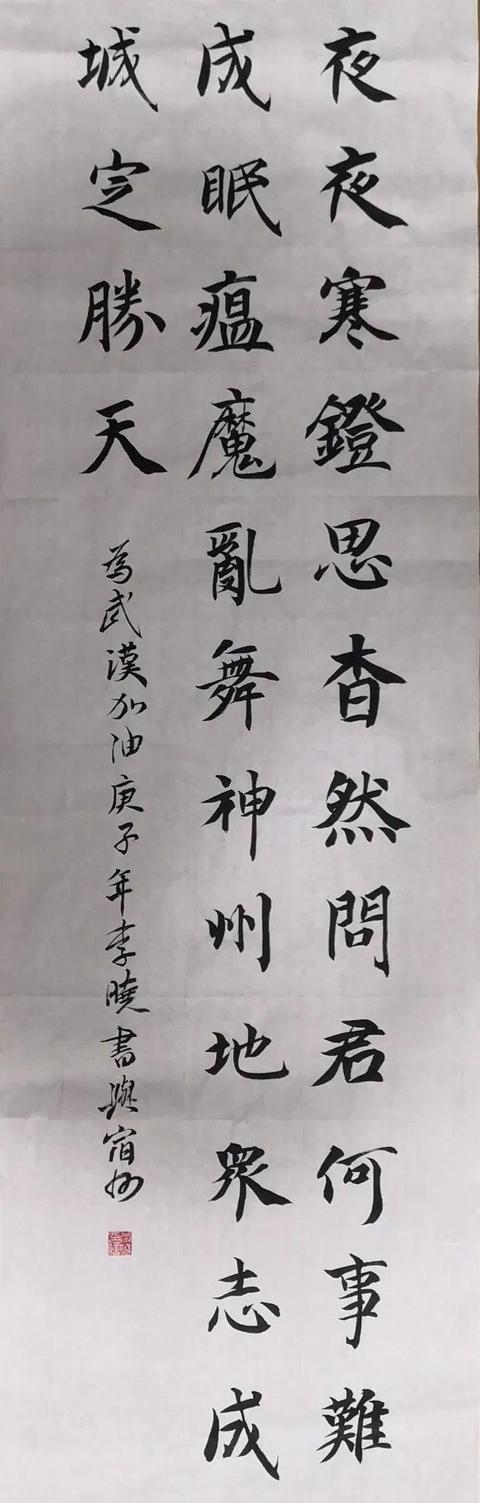 夜夜寒鐙思杳然問君何事難
成眠瘟魔亂舞神州地眾志成
城定勝天
為武漢加油庚子年李曉書與宿州